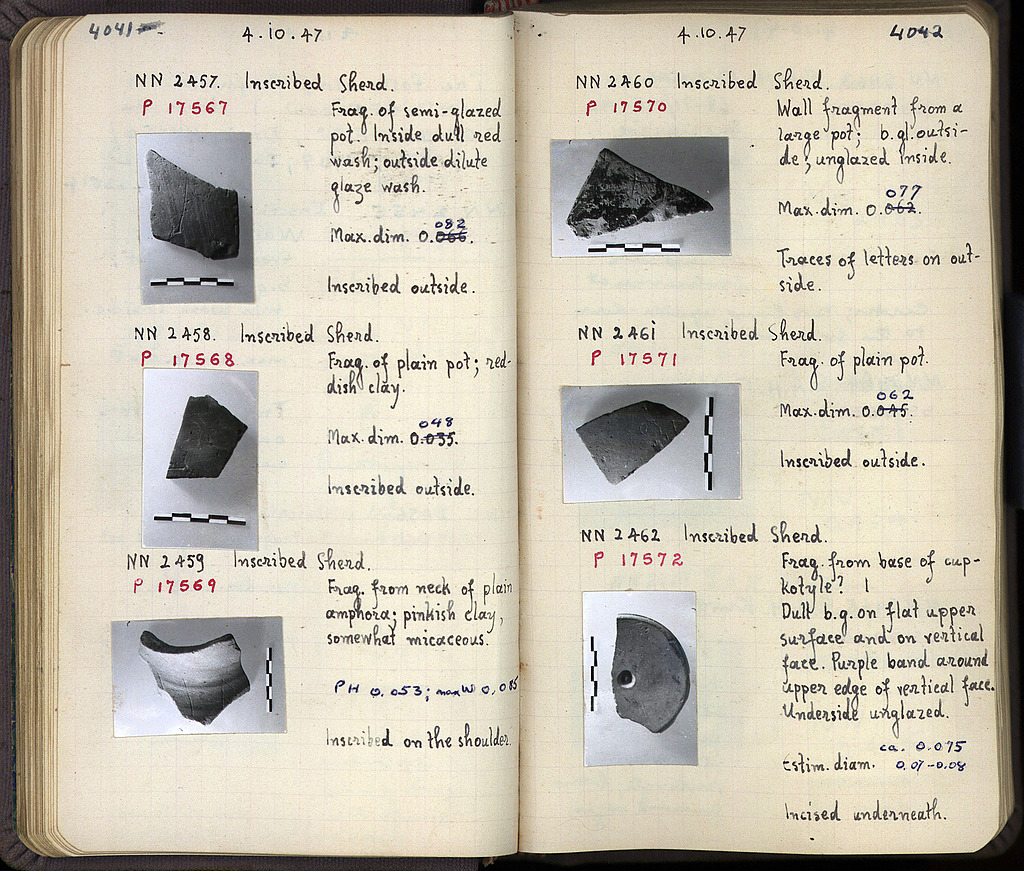 4041
4.10.47
NN 2457. Inscribed Sherd.
P 17567
Frag. of semi-glazed
pot. Inside dull red
wash; outside dilute
glaze wash.
082
Max. dim. 0.066.
Inscribed outside.
NN 2458. Inscribed Sherd.
P 17568
Frag. of plain pot; red-
dish clay.
048
Max. dim. 0.035.
Inscribed outside.
NN 2459 Inscribed Sherd.
P 17569
Frag. from neck of plain
amphora; pinkish clay,
somewhat micaceous.
PH 0.053; max W 0.085
Inscribed on the shoulder.
4.10.47
4042
NN 2460 Inscribed Sherd.
P 17570
Wall fragment from a
large pot; b.gl. outsi-
de; unglazed inside.
077
Max. dim. 0.062.
Traces of letters on out-
side.
NN 2461 Inscribed Sherd.
P 17571
Frag. of plain pot.
062
Max. dim. 0.045.
Inscribed outside.
NN 2462 Inscribed Sherd.
P 17572
Frag. from base of cup-
kotyle? 1
Dull b.g. on flat upper
surface and on vertical
face. Purple band around
upper edge of vertical face.
Underside unglazed.
ca. 0.075
Estim. diam. 0.07-0.08
Incised underneath.